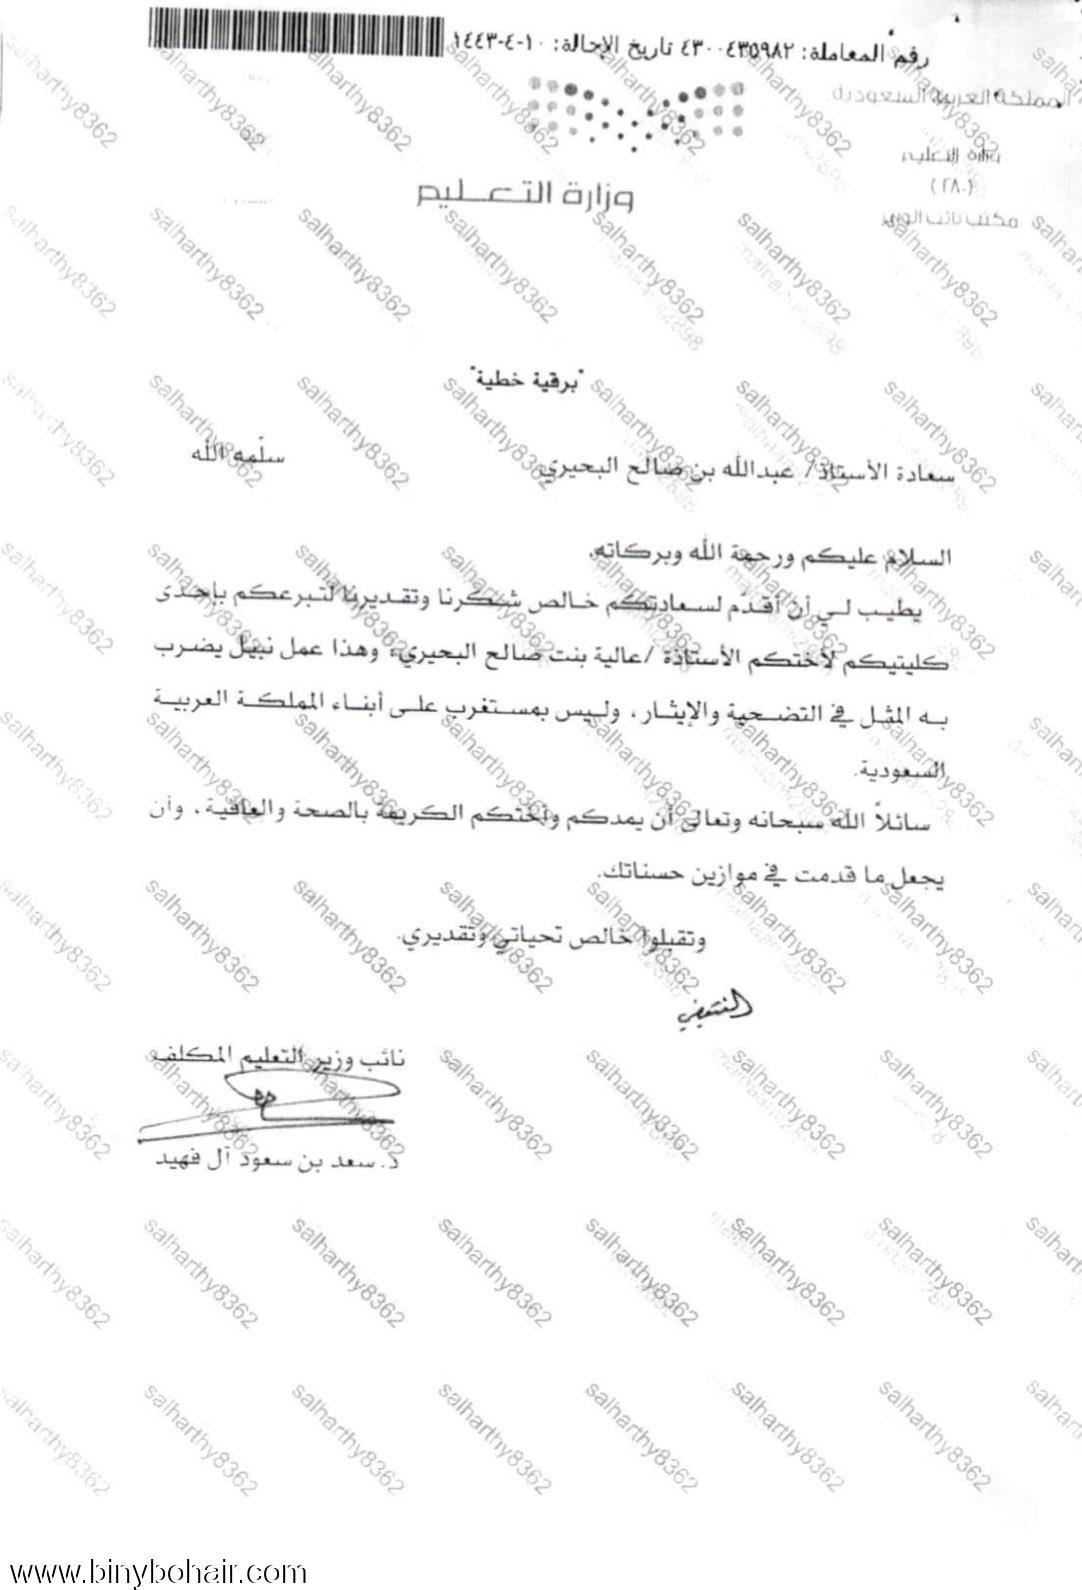 رقم المعاملة: ٤٣٠٠٤٣٥٩٨٢ تاريخ الإحالة: ١٠-٤-١٤٤٣
المملكة العربية السعودية
وزارة التعليم
(٢٨٠)
مكتب نائب الوزير
وزارة التعليم
"برقية خطية"
سعادة الأستاذ/ عبدالله بن صالح البحيري سلّمه الله
السلام عليكم ورحمة الله وبركاته،
يطيب لي أن أقدّم لسعادتكم خالص شكرنا وتقديرنا لتبرعكم بإحدى
كليتيكم لأختكم الأستاذة /عالية بنت صالح البحيري، وهذا عمل نبيل يضرب
به المثل في التضحية والإيثار، وليس بمستغرب على أبناء المملكة العربية
السعودية.
سائلاً الله سبحانه وتعالى أن يمدكم وأختكم الكريمة بالصحة والعافية، وأن
يجعل ما قدمت في موازين حسناتك.
وتقبلوا خالص تحياتي وتقديري.
نائب وزير التعليم المكلف
د. سعد بن سعود آل فهيد
salharthy8362
www.binybohair.com